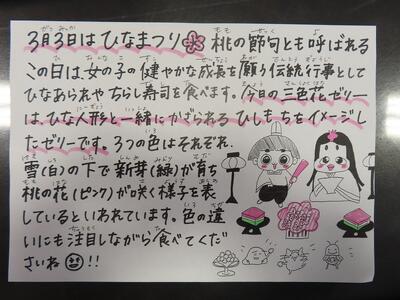 3月3日はひなまつり 桃の節句とも呼ばれる
この日は女の子の健やかな成長を願う伝統行事として
ひなあられやちらし寿司を食べます。今日の三色花ゼリー
は、ひな人形と一緒にかざられるひしもちをイメージし
たゼリーです。3つの色はそれぞれ
雪(白)の下で新芽(緑)が育ち
桃の花(ピンク)が咲く様子を表
しているといわれています。色の違
いにも注目しながら食べてくだ
さいね!!